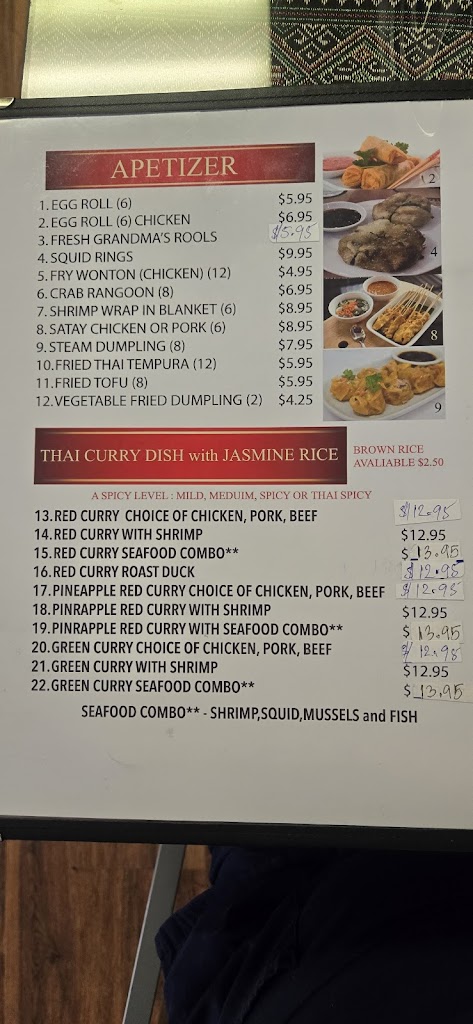 APETIZER
1. EGG ROLL (6) $5.95
2. EGG ROLL (6) CHICKEN $6.95
3. FRESH GRANDMA'S ROOLS $5.95
4. SQUID RINGS $9.95
5. FRY WONTON (CHICKEN) (12) $4.95
6. CRAB RANGOON (8) $6.95
7. SHRIMP WRAP IN BLANKET (6) $8.95
8. SATAY CHICKEN OR PORK (6) $8.95
9. STEAM DUMPLING (8) $7.95
10. FRIED THAI TEMPURA (12) $5.95
11. FRIED TOFU (8) $5.95
12. VEGETABLE FRIED DUMPLING (2) $4.25
2
4
8
9
THAI CURRY DISH with JASMINE RICE
BROWN RICE
AVALIABLE $2.50
A SPICY LEVEL : MILD, MEDUIM, SPICY OR THAI SPICY
13. RED CURRY CHOICE OF CHICKEN, PORK, BEEF $12.95
14. RED CURRY WITH SHRIMP $12.95
15. RED CURRY SEAFOOD COMBO** $13.95
16. RED CURRY ROAST DUCK $12.95
17. PINEAPPLE RED CURRY CHOICE OF CHICKEN, PORK, BEEF $12.95
18. PINRAPPLE RED CURRY WITH SHRIMP $12.95
19. PINRAPPLE RED CURRY WITH SEAFOOD COMBO** $13.95
20. GREEN CURRY CHOICE OF CHICKEN, PORK, BEEF $12.95
21. GREEN CURRY WITH SHRIMP $12.95
22. GREEN CURRY SEAFOOD COMBO** $13.95
SEAFOOD COMBO** - SHRIMP,SQUID,MUSSELS and FISH